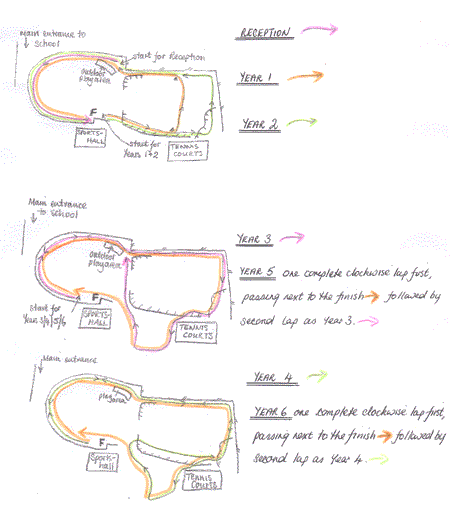 Main entrance to
School
start for Reception
Outdoor
play area
F
SPORTS-
HALL
start for
Years 1+2
TENNIS
COURTS
RECEPTION
YEAR 1
YEAR 2
Main entrance
to School
Outdoor
play area
F
Start for
Years 3/4/5/6
SPORTS-
HALL
TENNIS
COURTS
YEAR 3
YEAR 5 one complete clockwise lap first,
passing next to the finish followed by
second lap as Year 3.
Main entrance
play
area
F
Sports-
hall
TENNIS
COURTS
YEAR 4
YEAR 6 one complete clockwise lap first,
passing next to the finish followed by
second lap as Year 4.